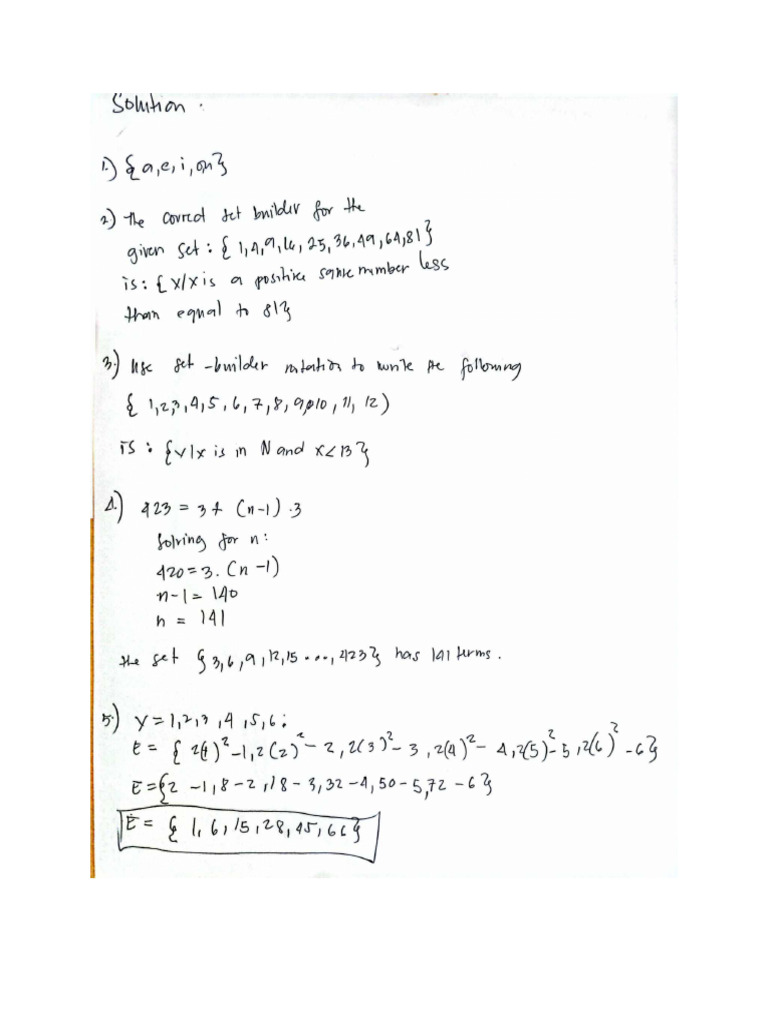 Solution.
1.) {a,e,i,on}
2) The correct set builder for the
given set: { 1,4,9,16, 25,36,49,64,81}
is: {x/x is a positive square number less
than equal to 81}
3.) Use set-builder notation to write the following
{ 1,2,3,4,5,6,7,8,9,10,11, 12)
is: {x|x is in N and x<13}
4.) 423 = 3+ (n-1) .3
Solving for n:
420=3. (n-1)
n-1= 140
n = 141
the set {3,6,9,12,15 ..., 423} has 141 terms.
5.) Y=1,2,3,4,5,6:
E= { 2(1)²-1,2(2)²-2,2(3)²-3,2(4)²-4,2(5)²-5,2(6)²-6}
E={2-1,8-2,18-3,32-4,50-5,72-6}
E= { 1,6,15,28,45,66}